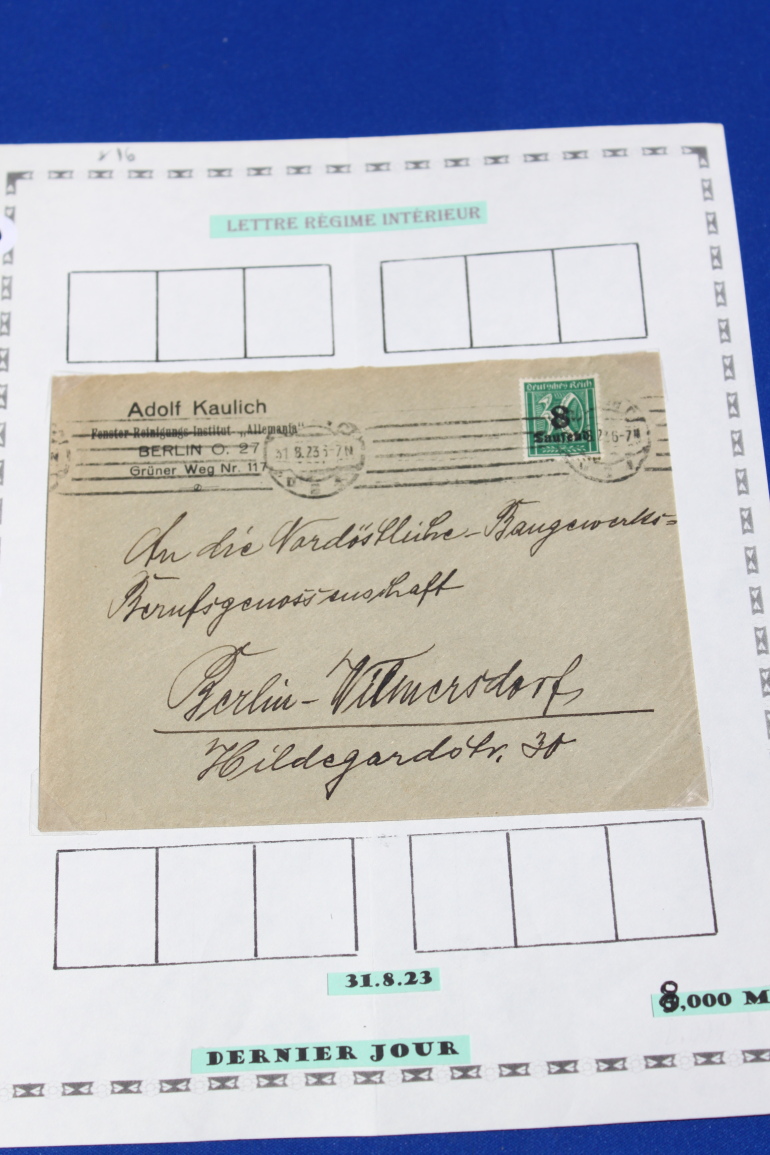 x 16
LETTRE RÉGIME INTÉRIEUR
Adolf Kaulich
Fenster-Reinigungs-Institut „Allemania"
BERLIN O. 27
Grüner Weg Nr. 117
31.8.23 6-7N
Deutsches Reich
30
8
Tausend
23 6-7N
An die Nordöstliche-Baugewerks-
Berufsgenossenschaft
Berlin-Wilmersdorf
Hildegardstr. 30
31.8.23
8,000 M
DERNIER JOUR